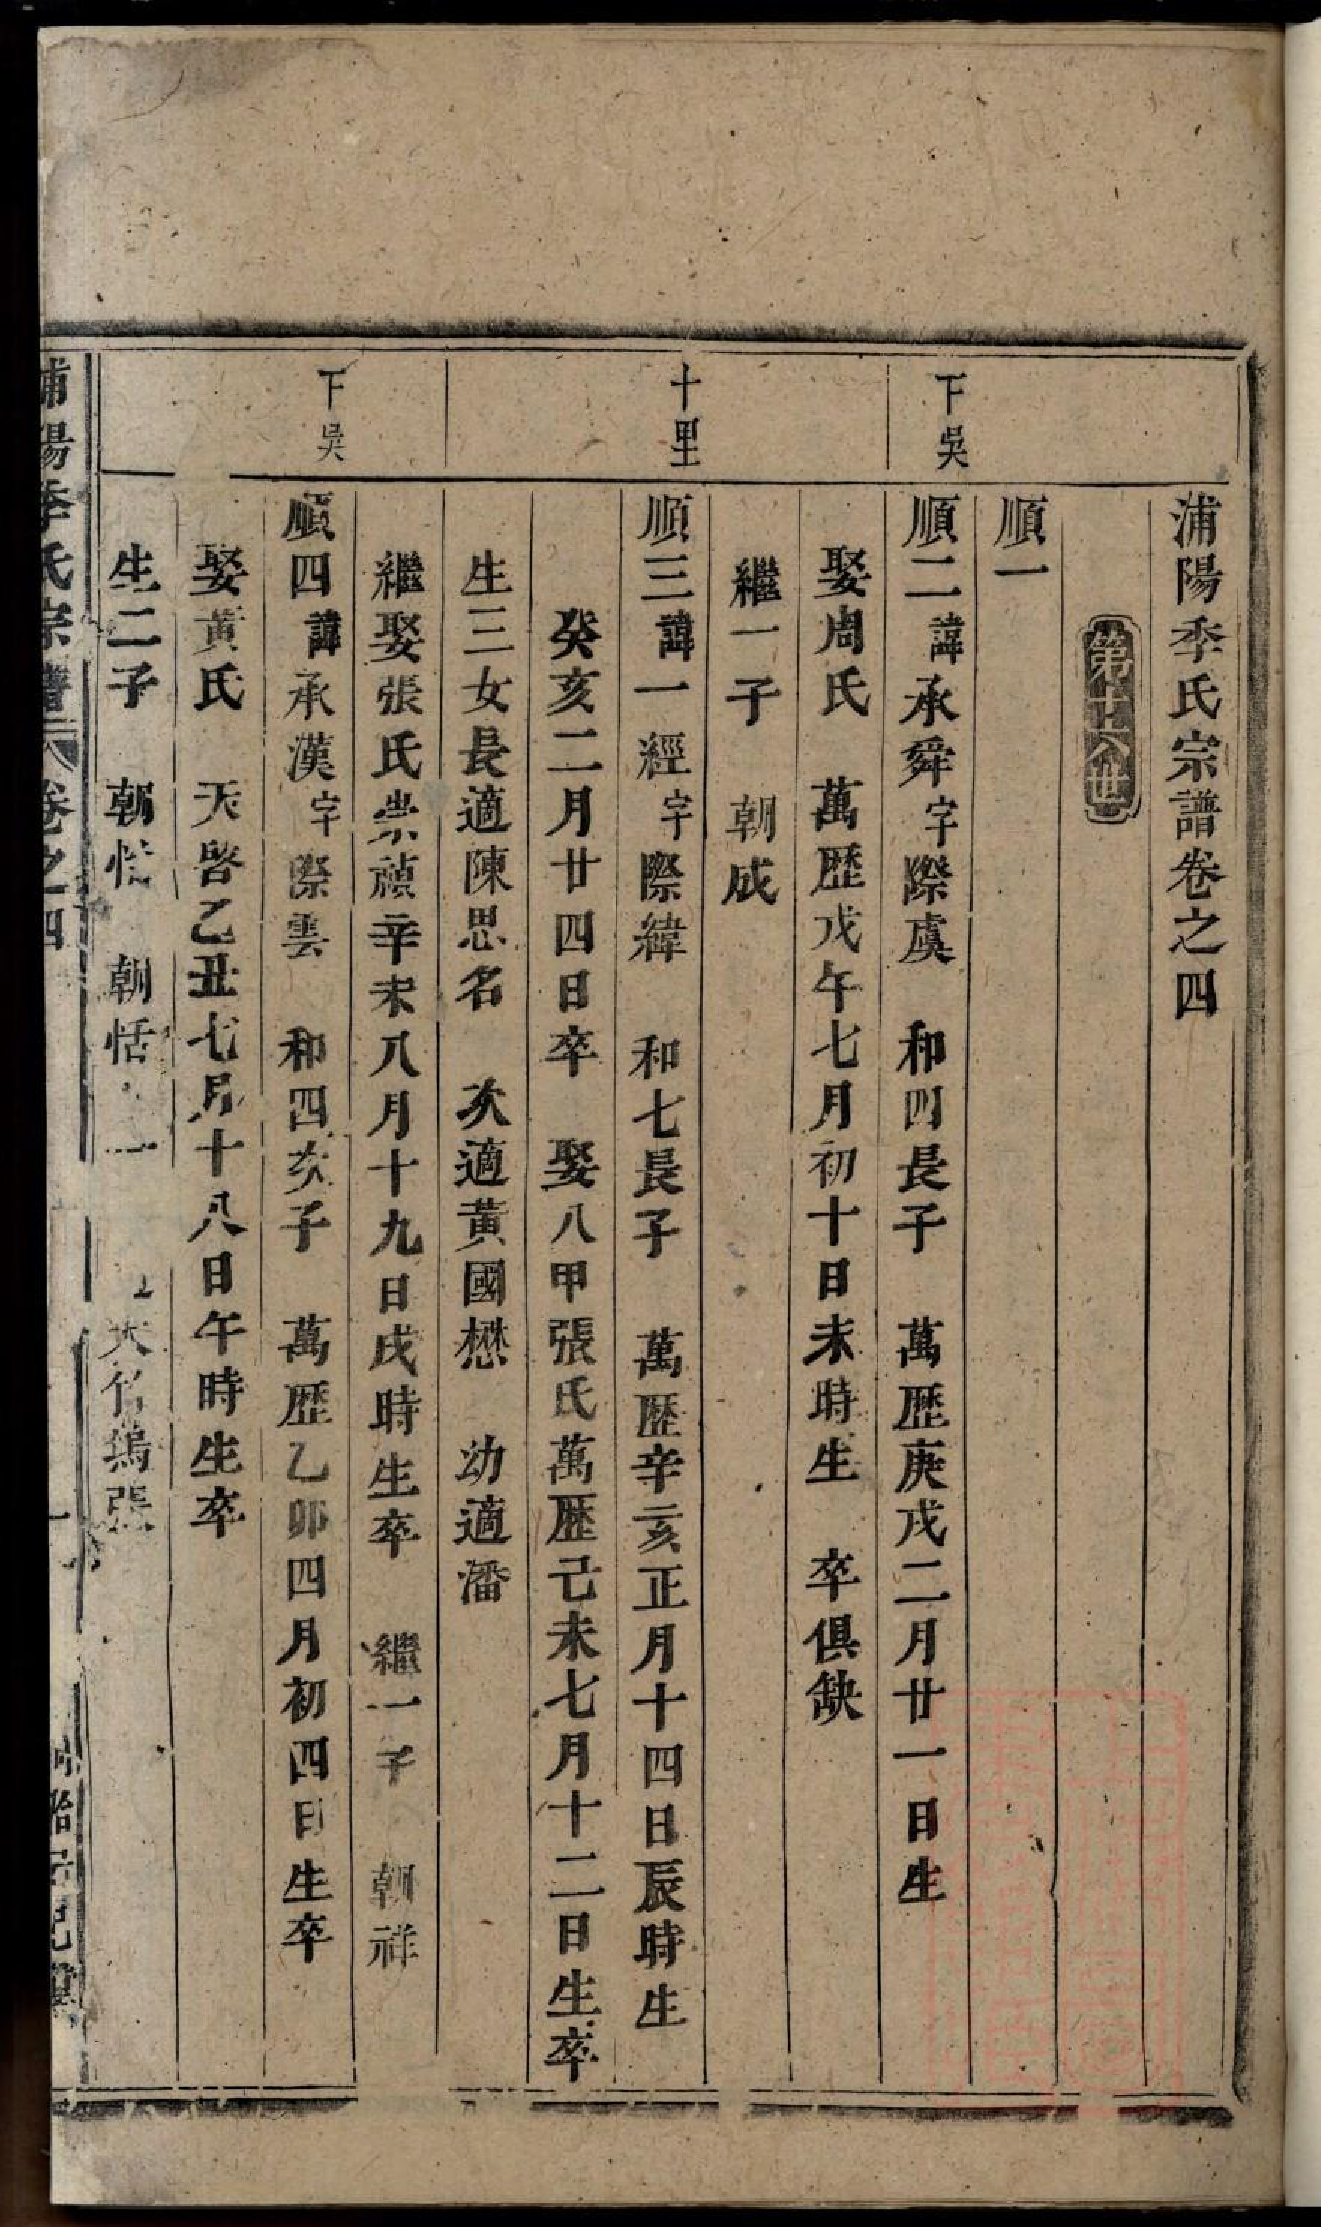 浦陽季氏宗譜卷之四
第十八世
順一
下吳
順二諱承舜字際虞 和四長子 萬歷庚戌二月廿一日生
娶周氏 萬歷戊午七月初十日未時生 卒俱缺
繼一子 朝成
十里
順三諱一經字際緯 和七長子 萬歷辛亥正月十四日辰時生
癸亥二月廿四日卒 娶八甲張氏萬歷己未七月十二日生卒
生三女長適陳思名 次適黃國懋 幼適潘
繼娶張氏崇禎辛未八月十九日戌時生卒 繼一子 朝祥
下吳
順四諱承漢字際雲 和四次子 萬歷乙卯四月初四日生卒
娶黃氏 天啓乙丑七月十八日午時生卒
生二子 朝忙 朝恬 一 大 塢張
浦陽季氏宗譜 卷之四